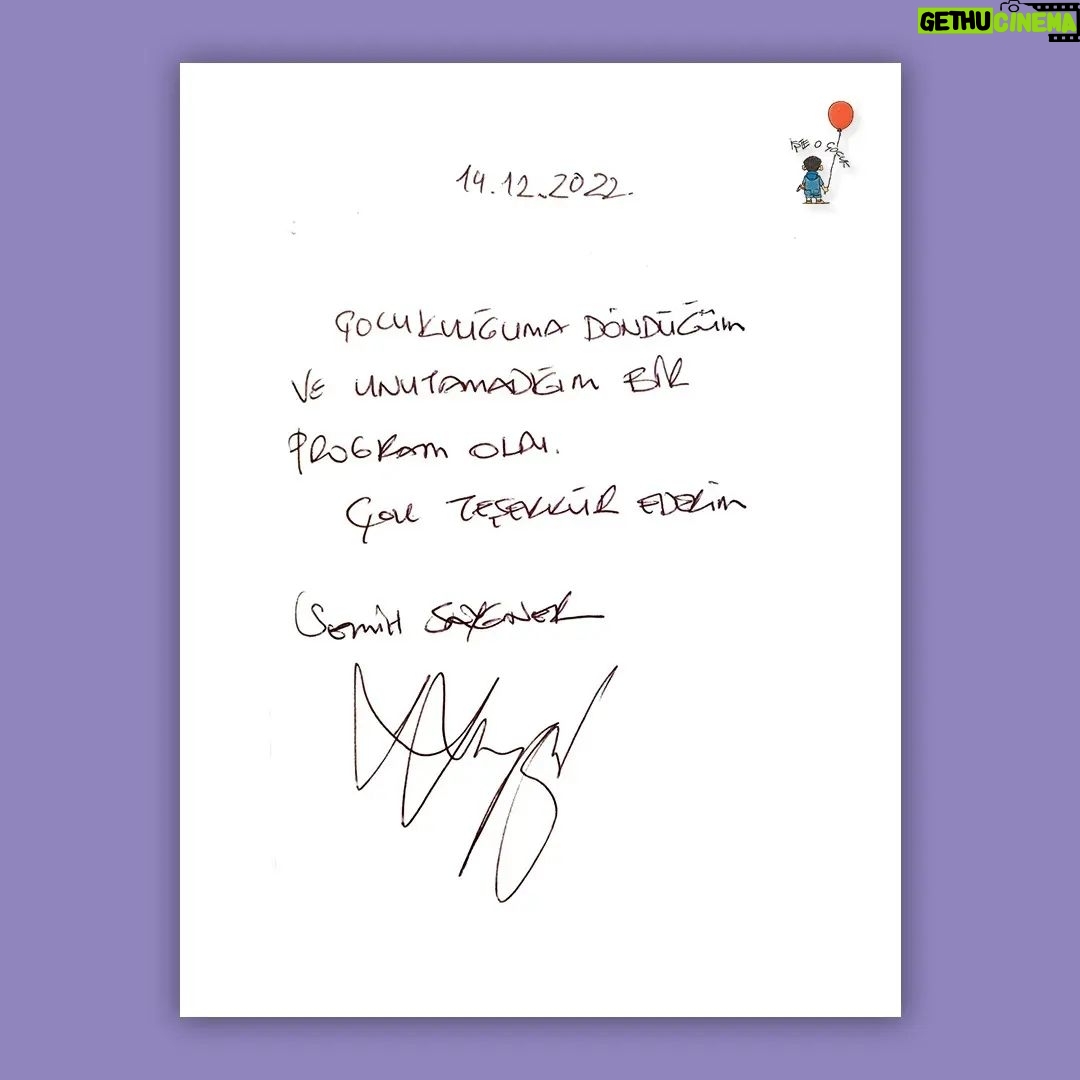 GETHUCINEMA
İŞTE O ÇOCUK
14.12.2022.
ÇOCUKLUĞUMA DÖNDÜĞÜM
VE UNUTAMADIĞIM BİR
PROGRAM OLDU.
ÇOK TEŞEKKÜR EDERİM
SEMİH SAYGINER